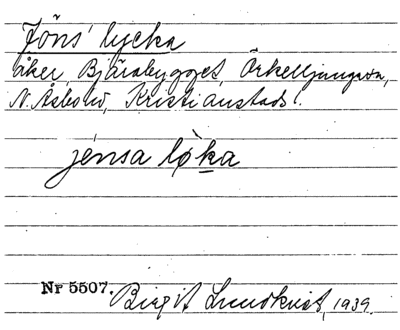 Jöns' lycka
åker, Bjärabygget, Örkelljungava,
N. Åsbo hd, Kristianstads l.
jénsa lø̀ka
Nr 5507. Birgit Lundkvist, 1939.